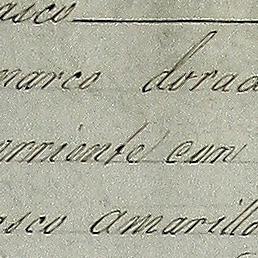 asco
marco dorad
orriente con
asco amarillo